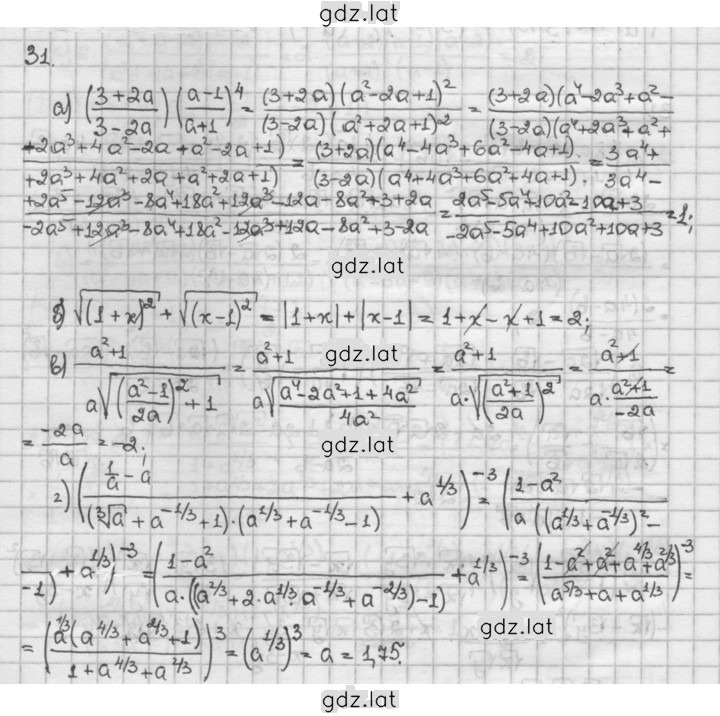 gdz.lat
31.
а) ((3+2a)/(3-2a)) ((a-1)/(a+1))^4 = ((3+2a)(a²-2a+1)²)/((3-2a)(a²+2a+1)²) = ((3+2a)(a⁴-2a³+a²-)/((3-2a)(a⁴+2a³+a²+)
(+2a³+4a²-2a+a²-2a+1))/(+2a³+4a²+2a+a²+2a+1)) = ((3+2a)(a⁴-4a³+6a²-4a+1))/((3-2a)(a⁴+4a³+6a²+4a+1)) = (3a⁴+)/(3a⁴-)
(+2a⁵-12a³-8a⁴+18a²+12a³-12a-8a²+3+2a)/(-2a⁵+12a³-8a⁴+18a²-12a³+12a-8a²+3-2a) = (2a⁵-5a⁴+10a²-10a+3)/(-2a⁵-5a⁴+10a²+10a+3) = 1;
gdz.lat
б) √((1+x)²) + √((x-1)²) = |1+x| + |x-1| = 1+x-x+1 = 2;
gdz.lat
в) (a²+1)/(a√(((a²-1)/2a)²+1)) = (a²+1)/(a√((a⁴-2a²+1+4a²)/4a²)) = (a²+1)/(a·√(((a²+1)/2a)²)) = (a²+1)/(a·(a²+1)/(-2a)) =
= (-2a)/a = -2;
gdz.lat
г) ((1/a - a)/((∛a + a^(-1/3) + 1)·(a^(1/3) + a^(-1/3) - 1)) + a^(1/3))^(-3) = ((1-a²)/(a((a^(1/3) + a^(-1/3))² -
-1) + a^(1/3))^(-3) = ((1-a²)/(a·((a^(2/3) + 2·a^(1/3)·a^(-1/3) + a^(-2/3)) - 1)) + a^(1/3))^(-3) = ((1-a²+a²+a^(4/3)+a^(2/3))/(a^(5/3)+a+a^(1/3)))^(-3) =
= ((a^(1/3)(a^(4/3)+a^(2/3)+1))/(1+a^(4/3)+a^(2/3)))³ = (a^(1/3))³ = a = 1,75.
gdz.lat
gdz.lat